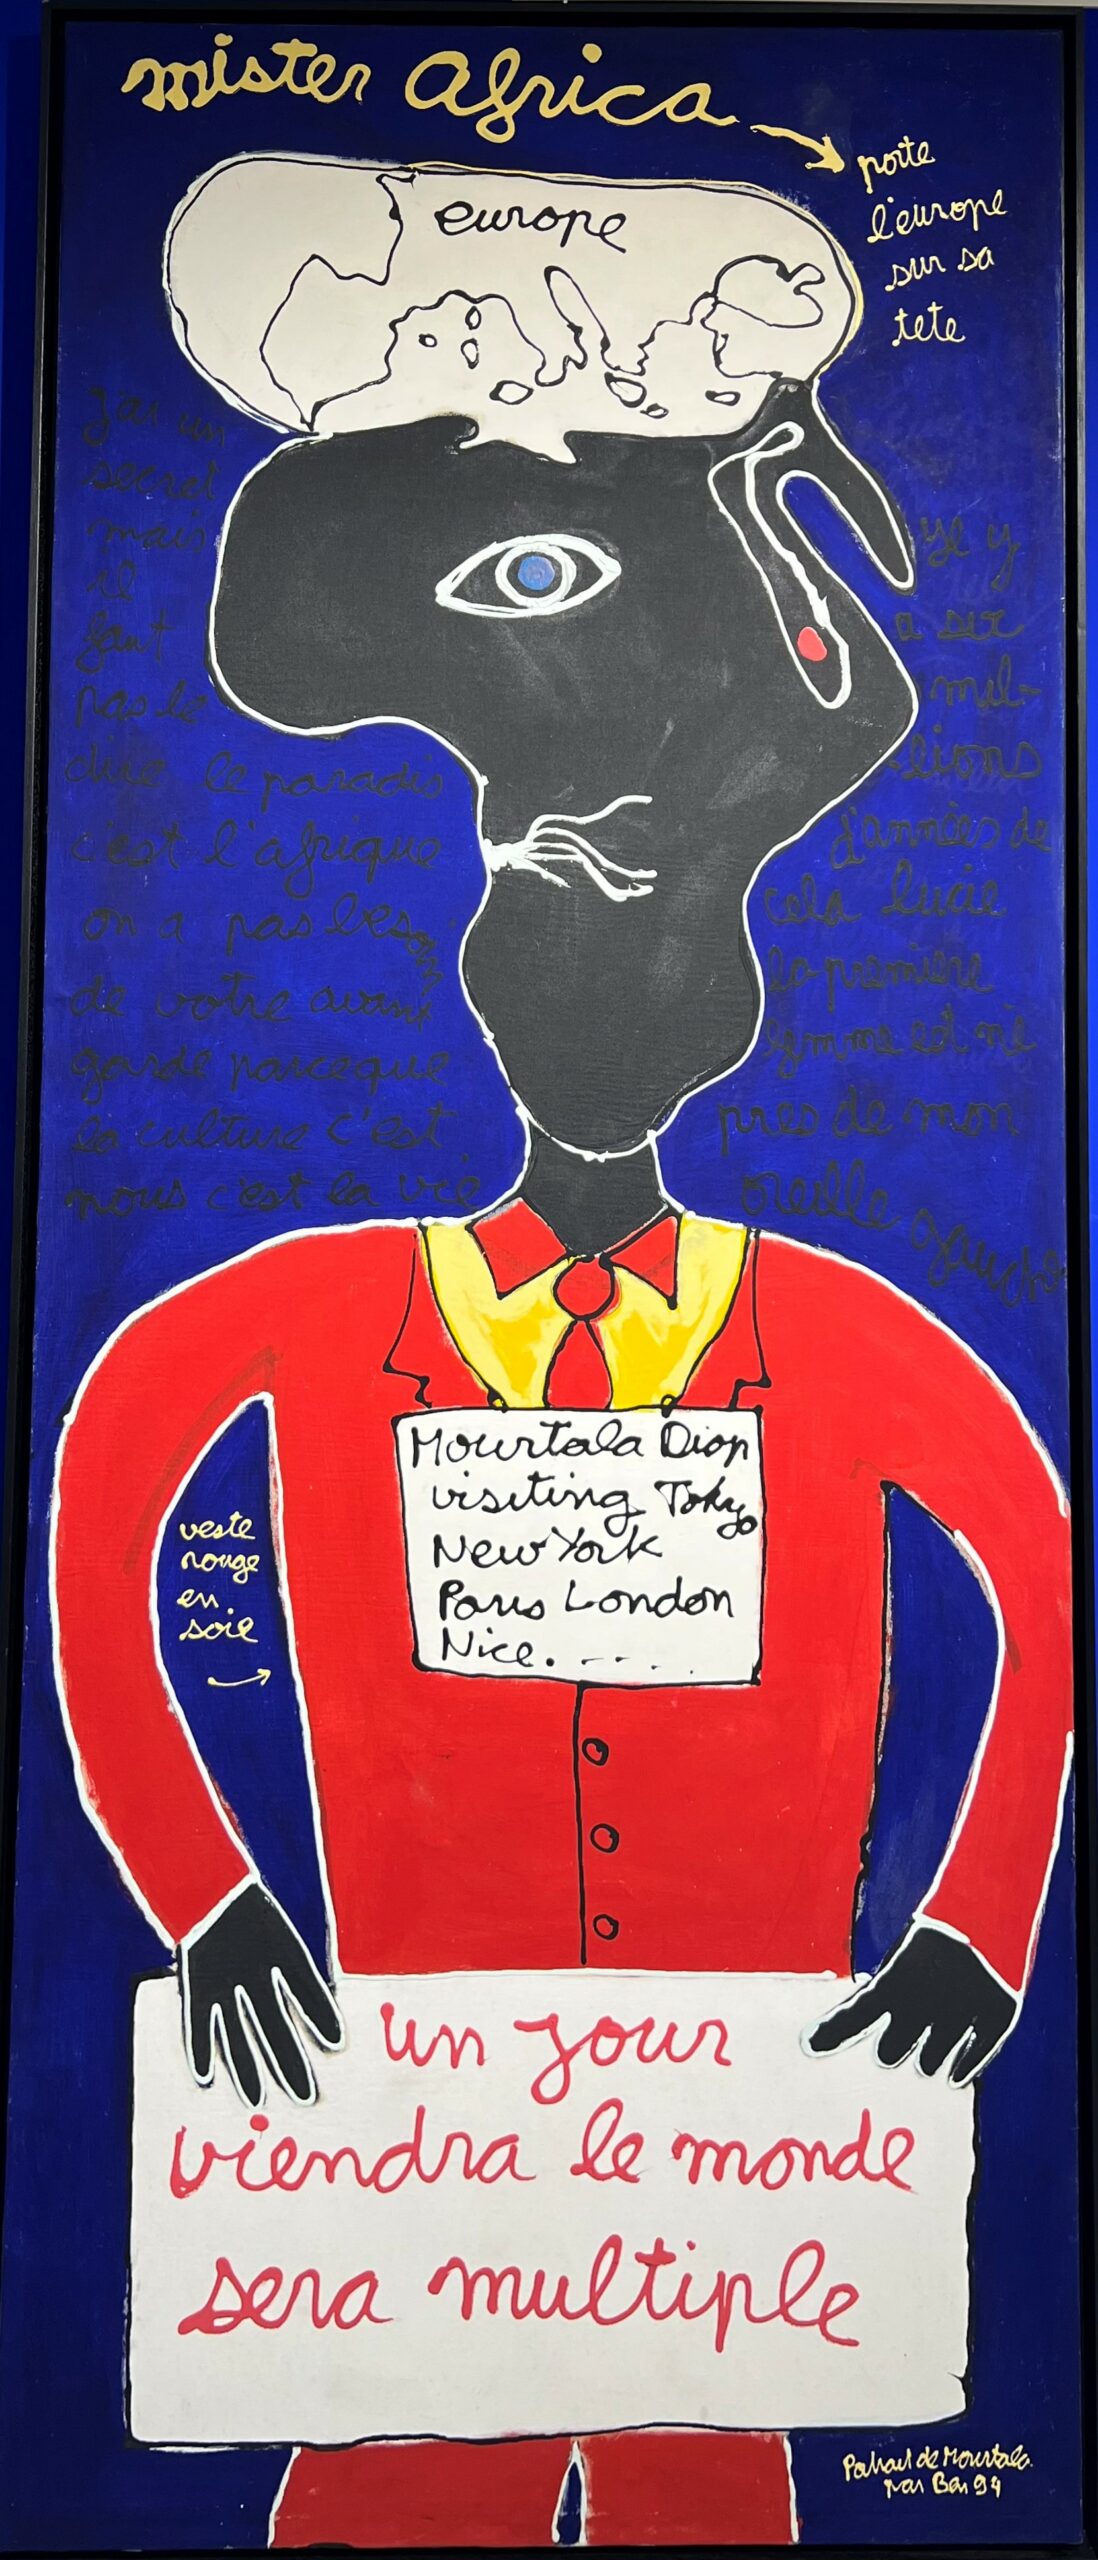 mister Africa
porte
l'europe
sur sa
tete
europe
j'ai un
secret
mais
il
faut
pas le
dire le paradis
c'est l'afrique
on a pas besoin
de votre avant
garde parceque
la culture c'est
nous c'est la vie
il y
a six
mil-
lions
d'années de
cela lucie
la première
femme est né
pres de mon
oreille gauche
Mourtala Diop
visiting Tokyo
New York
Paris London
Nice. . . . .
veste
rouge
en
soie
un jour
viendra le monde
sera multiple
Portrait de Mourtala
par Ben 94